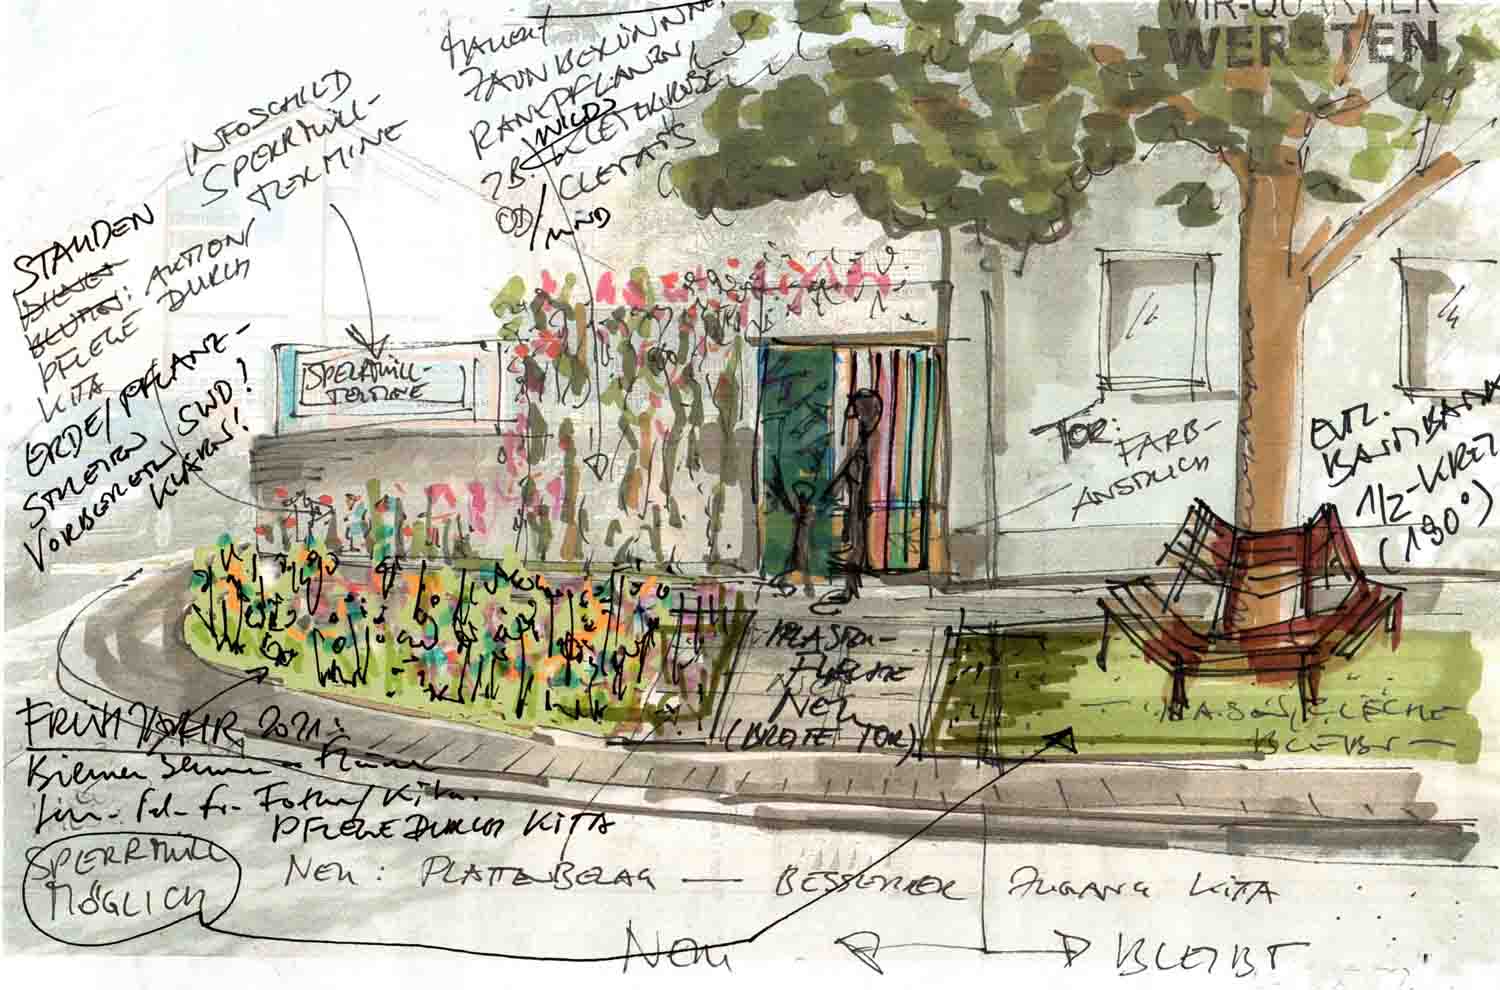 WIR-QUARTIER
WERSTEN
ZAUNBEGRÜNUNG
RANKPFLANZEN
ZB. WILDE
KLETTERROSE
CLEMATIS
UND
INFOSCHILD
SPERRMÜLL-
TERMINE
STAUDEN
BLUMEN: AKTION/
PFLEGE DURCH
KITA
ERDE/PFLANZ-
STREIFEN SWD!
VORBEREITEN
KLÄREN!
SPERRMÜLL-
TERMINE
TOR:
FARB-
ANSTRICH
EVTL.
BAUMBANK
1/2-KREIS
(180°)
PFLASTER-
FLÄCHE
NEU
(BREITE TOR)
RASENFLÄCHE
BLEIBT
FRÜHJAHR 2021:
PFLEGE DURCH KITA
SPERRMÜLL
MÖGLICH
NEU: PLATTENBELAG — BESSERER ZUGANG KITA
NEU
BLEIBT